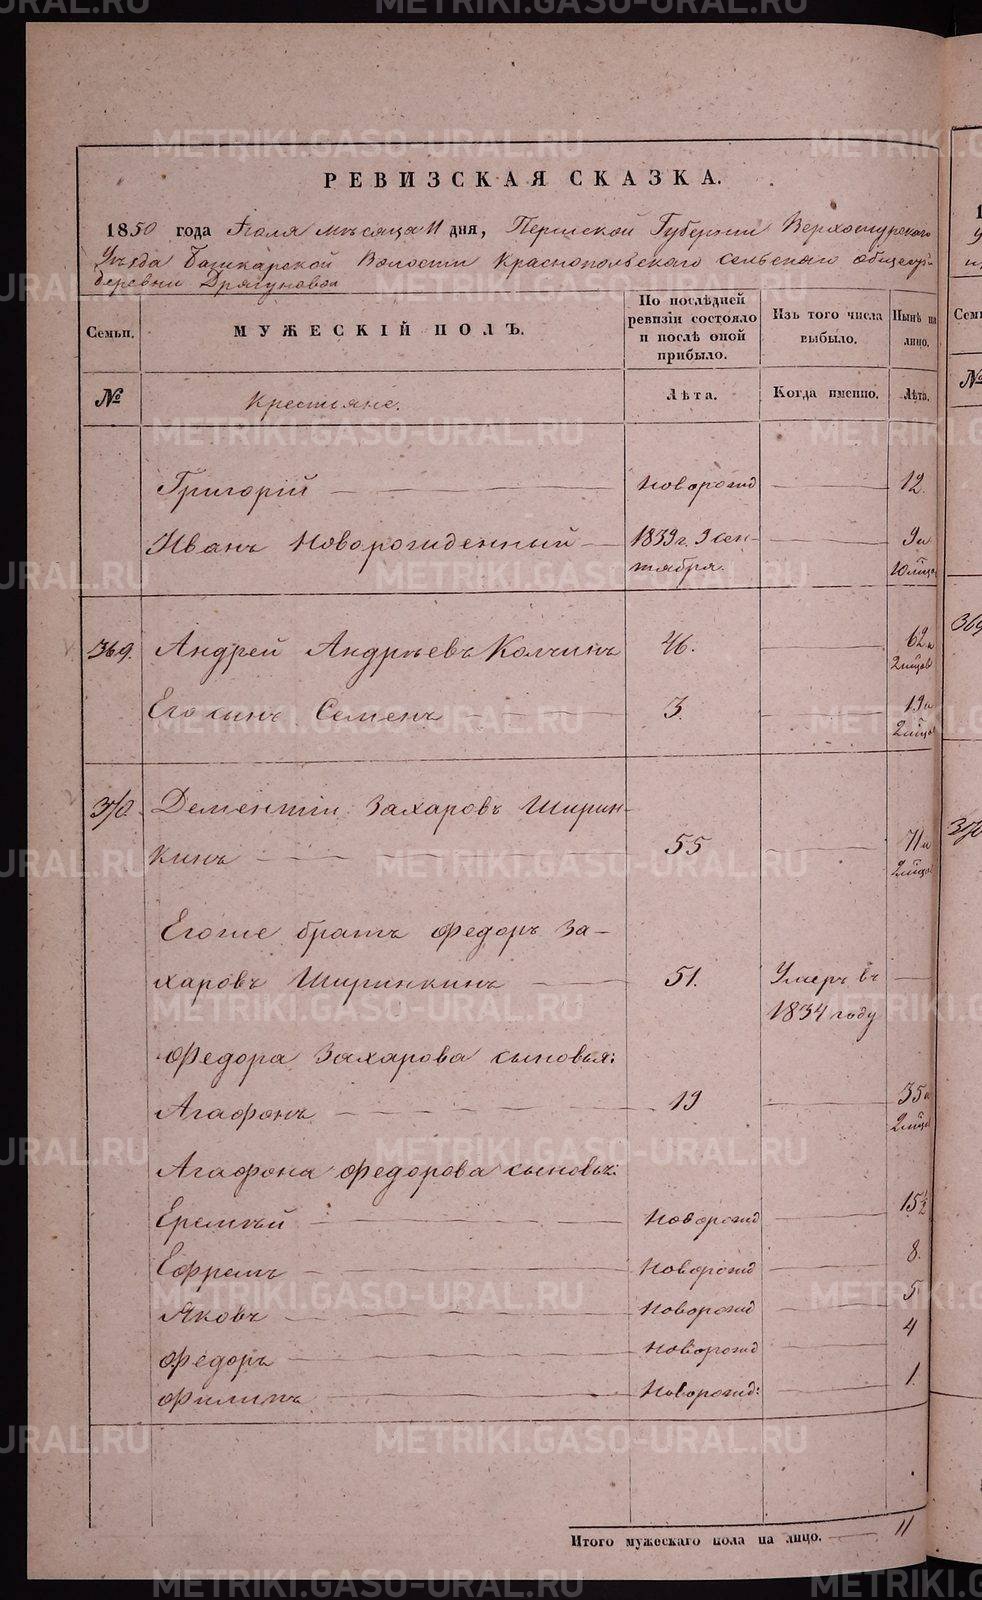 METRIKI.GASO-URAL.RU
РЕВИЗСКАЯ СКАЗКА.
1850 года Іюля мѣсяца 11 дня, Пермской Губерніи Верхотурскаго
Уѣзда Башкарской Волости Краснопольскаго сельскаго общества
деревни Дрягуновой
Семьи.
МУЖЕСКІЙ ПОЛЪ.
По послѣдней ревизіи состояло и послѣ оной прибыло.
Изъ того числа выбыло.
Нынѣ на лицо.
№
Крестьяне.
Лѣта.
Когда именно.
Лѣта.
Григорій — Новорожд — 12.
Иванъ Новорожденный — 1839 г. 9 сен- — 9 и
тября. 10 мѣся
369. Андрей Андреевъ Колчинъ 46. — 62 и
2 мѣсяц
Его сынъ Семенъ — 3. — 19 и
2 мѣсяц
370. Дементій Захаровъ Ширин-
кинъ — 55 — 71 и
2 мѣсяц
Егоже братъ Федоръ За-
харовъ Ширинкинъ — 51. Умеръ въ —
1834 году
Федора Захарова сыновья:
Агафонъ — 19 — 35 и
2 мѣся
Агафона Федорова сыновья:
Еремѣй — Новорожд — 15 1/2
Ефремъ — Новорожд — 8.
Яковъ — Новорожд — 5
Федоръ — Новорожд — 4
Филипъ — Новорожд: — 1.
Итого мужескаго пола на лицо. — 11